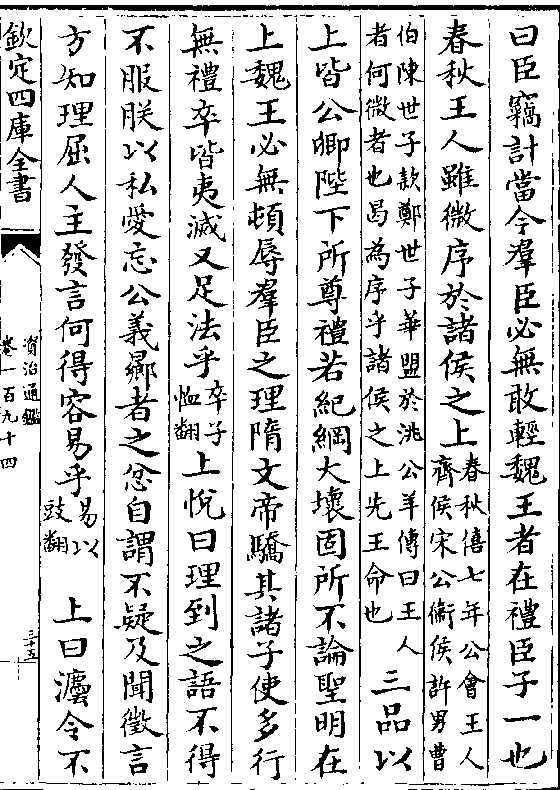 曰臣竊計當今羣臣必無敢輕魏王者在禮臣子一也
春秋王人雖微序於諸侯之上春秋僖七年公會王人
齊侯宋公衞侯許男曹
伯陳世子款鄭世子華盟於洮公羊傳曰王人
者何微者也曷為序乎諸侯之上先王命也三品以
上皆公卿陛下所尊禮若紀綱大壞固所不論聖明在
上魏王必無頓辱羣臣之理隋文帝驕其諸子使多行
無禮卒皆夷滅又足法乎卒子
恤翻上悅曰理到之語不得
不服朕以私愛忘公義曏者之忿自謂不疑及聞徵言
方知理屈人主發言何得容易乎易以
豉翻上曰灋令不
欽定四庫全書
資治通鑑
卷一百九十四
三十五